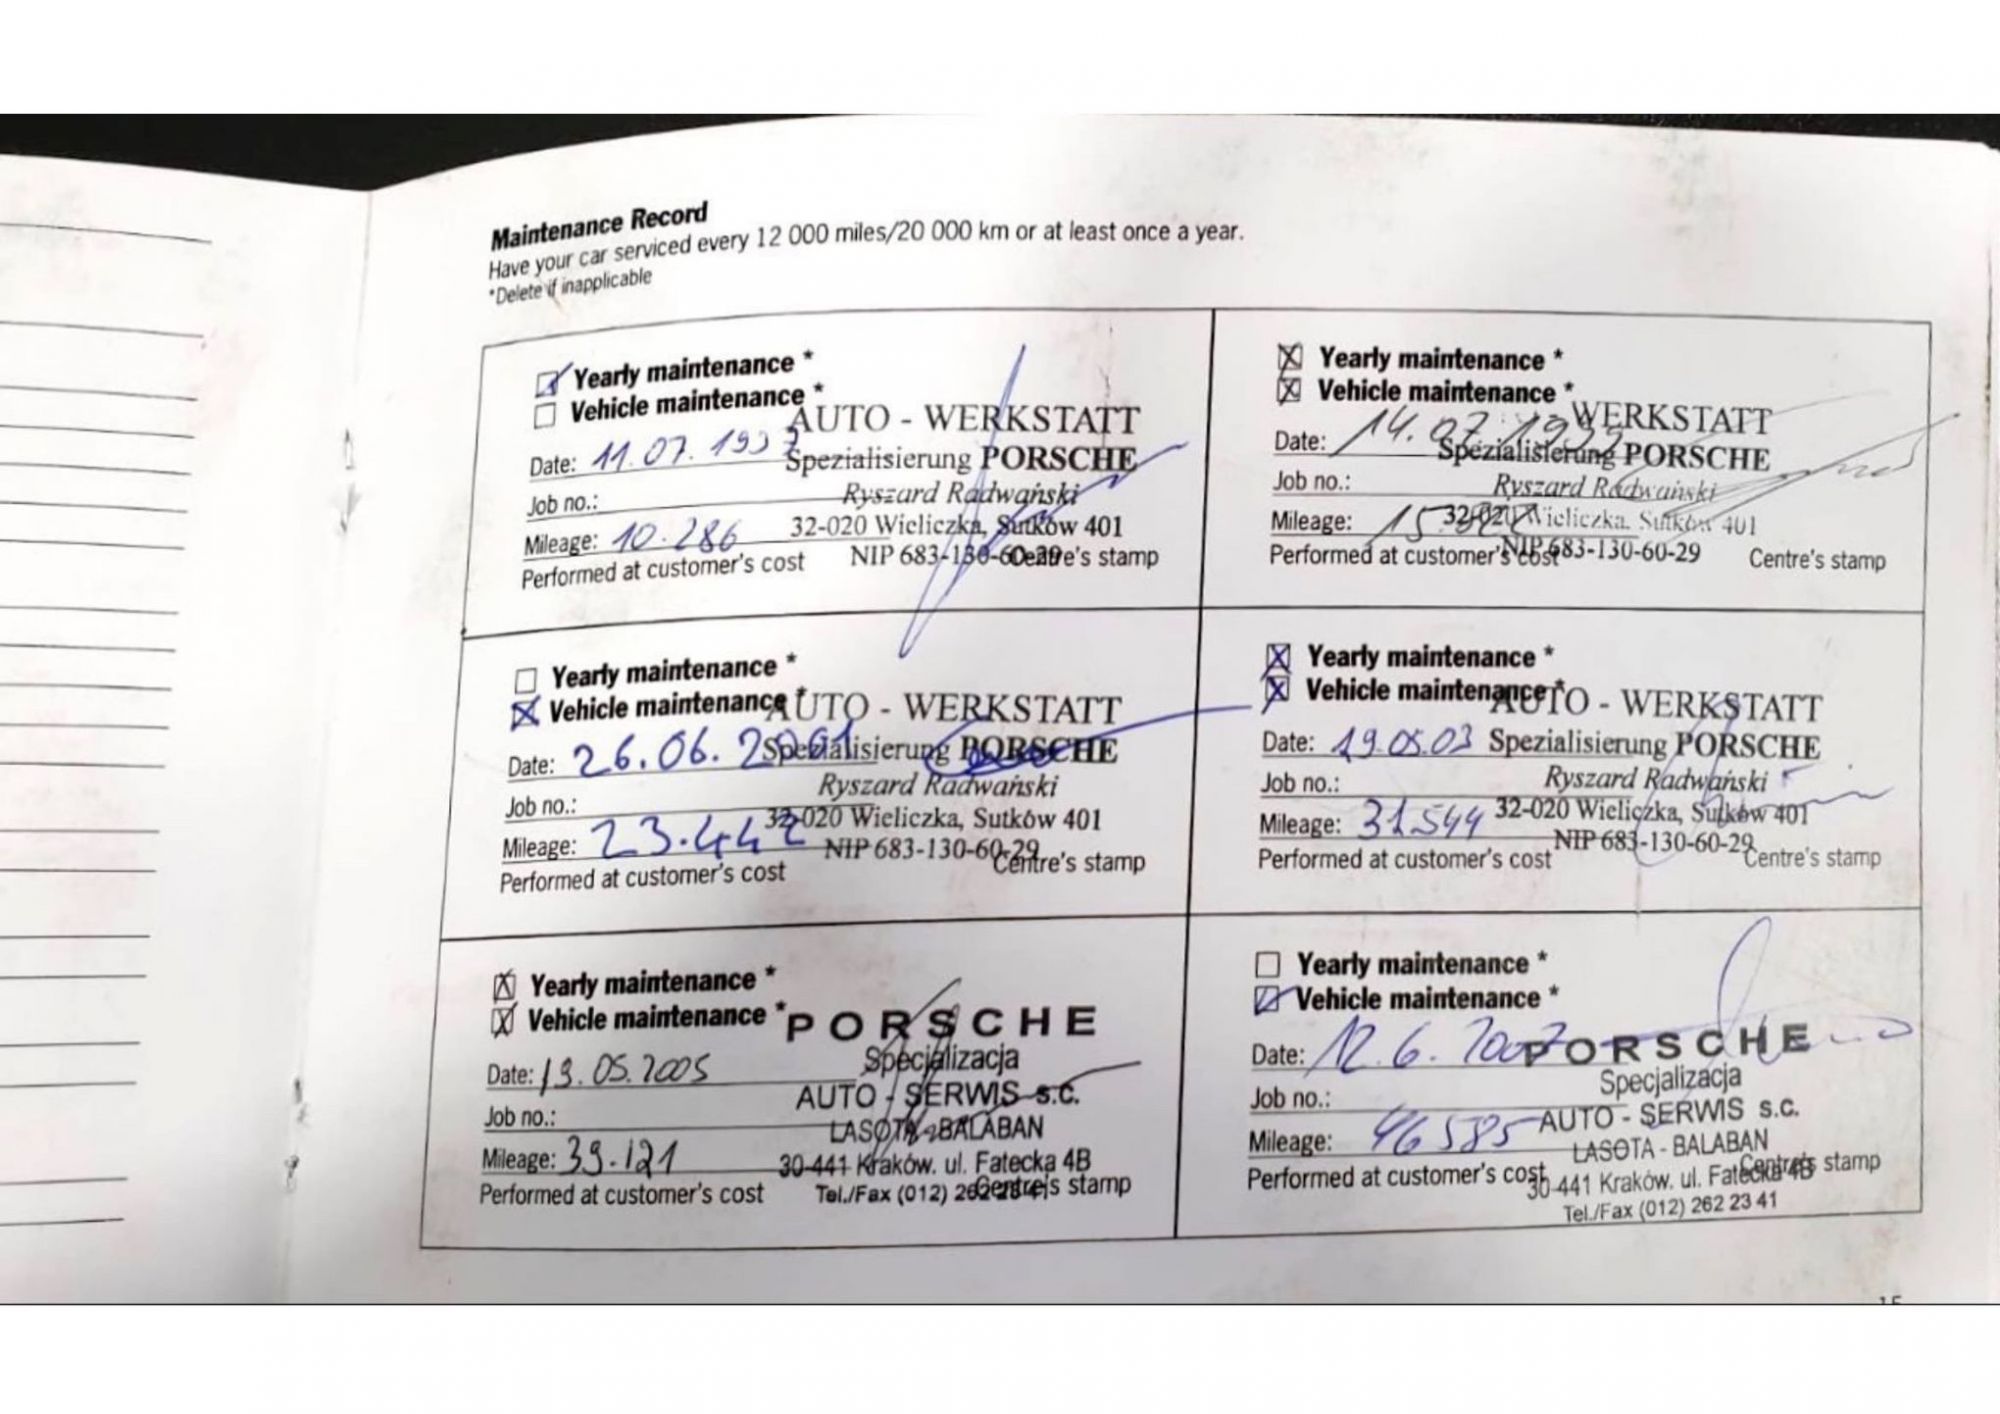 Maintenance Record
Have your car serviced every 12 000 miles/20 000 km or at least once a year.
*Delete if inapplicable
Yearly maintenance *
Vehicle maintenance *
AUTO - WERKSTATT
Date: 11.07.1997
Spezialisierung PORSCHE
Job no.:
Ryszard Radwański
Mileage: 10.286
32-020 Wieliczka, Sutków 401
Performed at customer's cost
NIP 683-130-60-29
Centre's stamp
Yearly maintenance *
Vehicle maintenance *
WERKSTATT
Date: 14.07.
Spezialisierung PORSCHE
Job no.:
Ryszard Radwański
Mileage:
32-020 Wieliczka, Sutków 401
Performed at customer's cost
NIP 683-130-60-29
Centre's stamp
Yearly maintenance *
Vehicle maintenance *
AUTO - WERKSTATT
Date: 26.06.2001
Spezialisierung PORSCHE
Job no.:
Ryszard Radwański
Mileage: 23.442
32-020 Wieliczka, Sutków 401
Performed at customer's cost
NIP 683-130-60-29
Centre's stamp
Yearly maintenance *
Vehicle maintenance *
AUTO - WERKSTATT
Date: 19.05.03
Spezialisierung PORSCHE
Job no.:
Ryszard Radwański
Mileage: 31544
32-020 Wieliczka, Sutków 401
Performed at customer's cost
NIP 683-130-60-29
Centre's stamp
Yearly maintenance *
Vehicle maintenance *
PORSCHE
Specjalizacja
Date: 13.05.2005
AUTO - SERWIS s.c.
Job no.:
LASOTA - BALABAN
Mileage: 39.121
30-441 Kraków. ul. Fatecka 4B
Performed at customer's cost
Tel./Fax (012) 262 23 41
Centre's stamp
Yearly maintenance *
Vehicle maintenance *
Date: 12.6.2007
PORSCHE
Specjalizacja
Job no.:
AUTO - SERWIS s.c.
Mileage: 46585
LASOTA - BALABAN
Performed at customer's cost
Centre's stamp
30-441 Kraków. ul. Fatecka 4B
Tel./Fax (012) 262 23 41